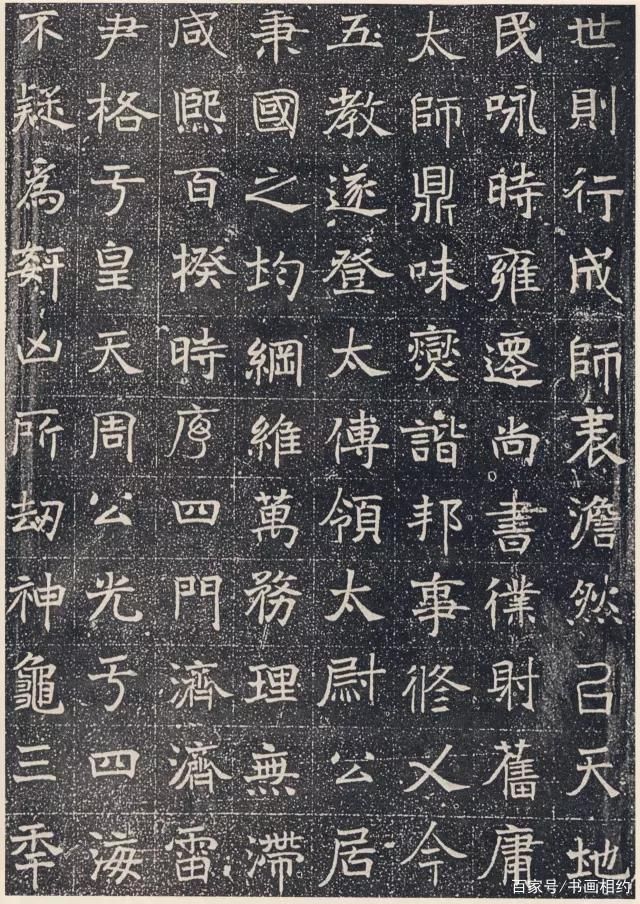 世則行成師表澹然㠯天地
民咏時雍遷尚書僕射舊庸
太師鼎味燮諧邦事脩乂今
五教遂登太傅領太尉公居
秉國之均綱維萬務理無滯
咸熙百揆時序四門濟濟雷
尹格于皇天周公光于四海
不疑為姧凶所劫神龜三年
百家号/书画相约